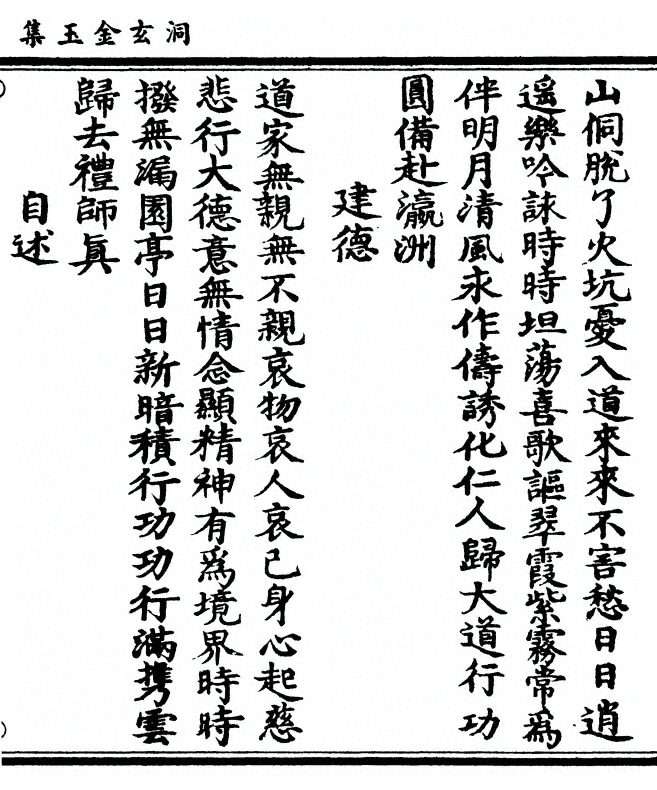 洞玄金玉集
山侗脫了火坑憂入道來來不害愁日日逍
遥樂吟詠時時坦蕩喜歌謳翠霞紫霧常爲
伴明月清風永作儔誘化仁人歸大道行功
圓備赴瀛洲
建德
道家無親無不親哀物哀人哀己身心起慈
悲行大德意無情念顯精神有爲境界時時
撥無漏園亭日日新暗積行功功行滿携雲
歸去禮師眞
自述